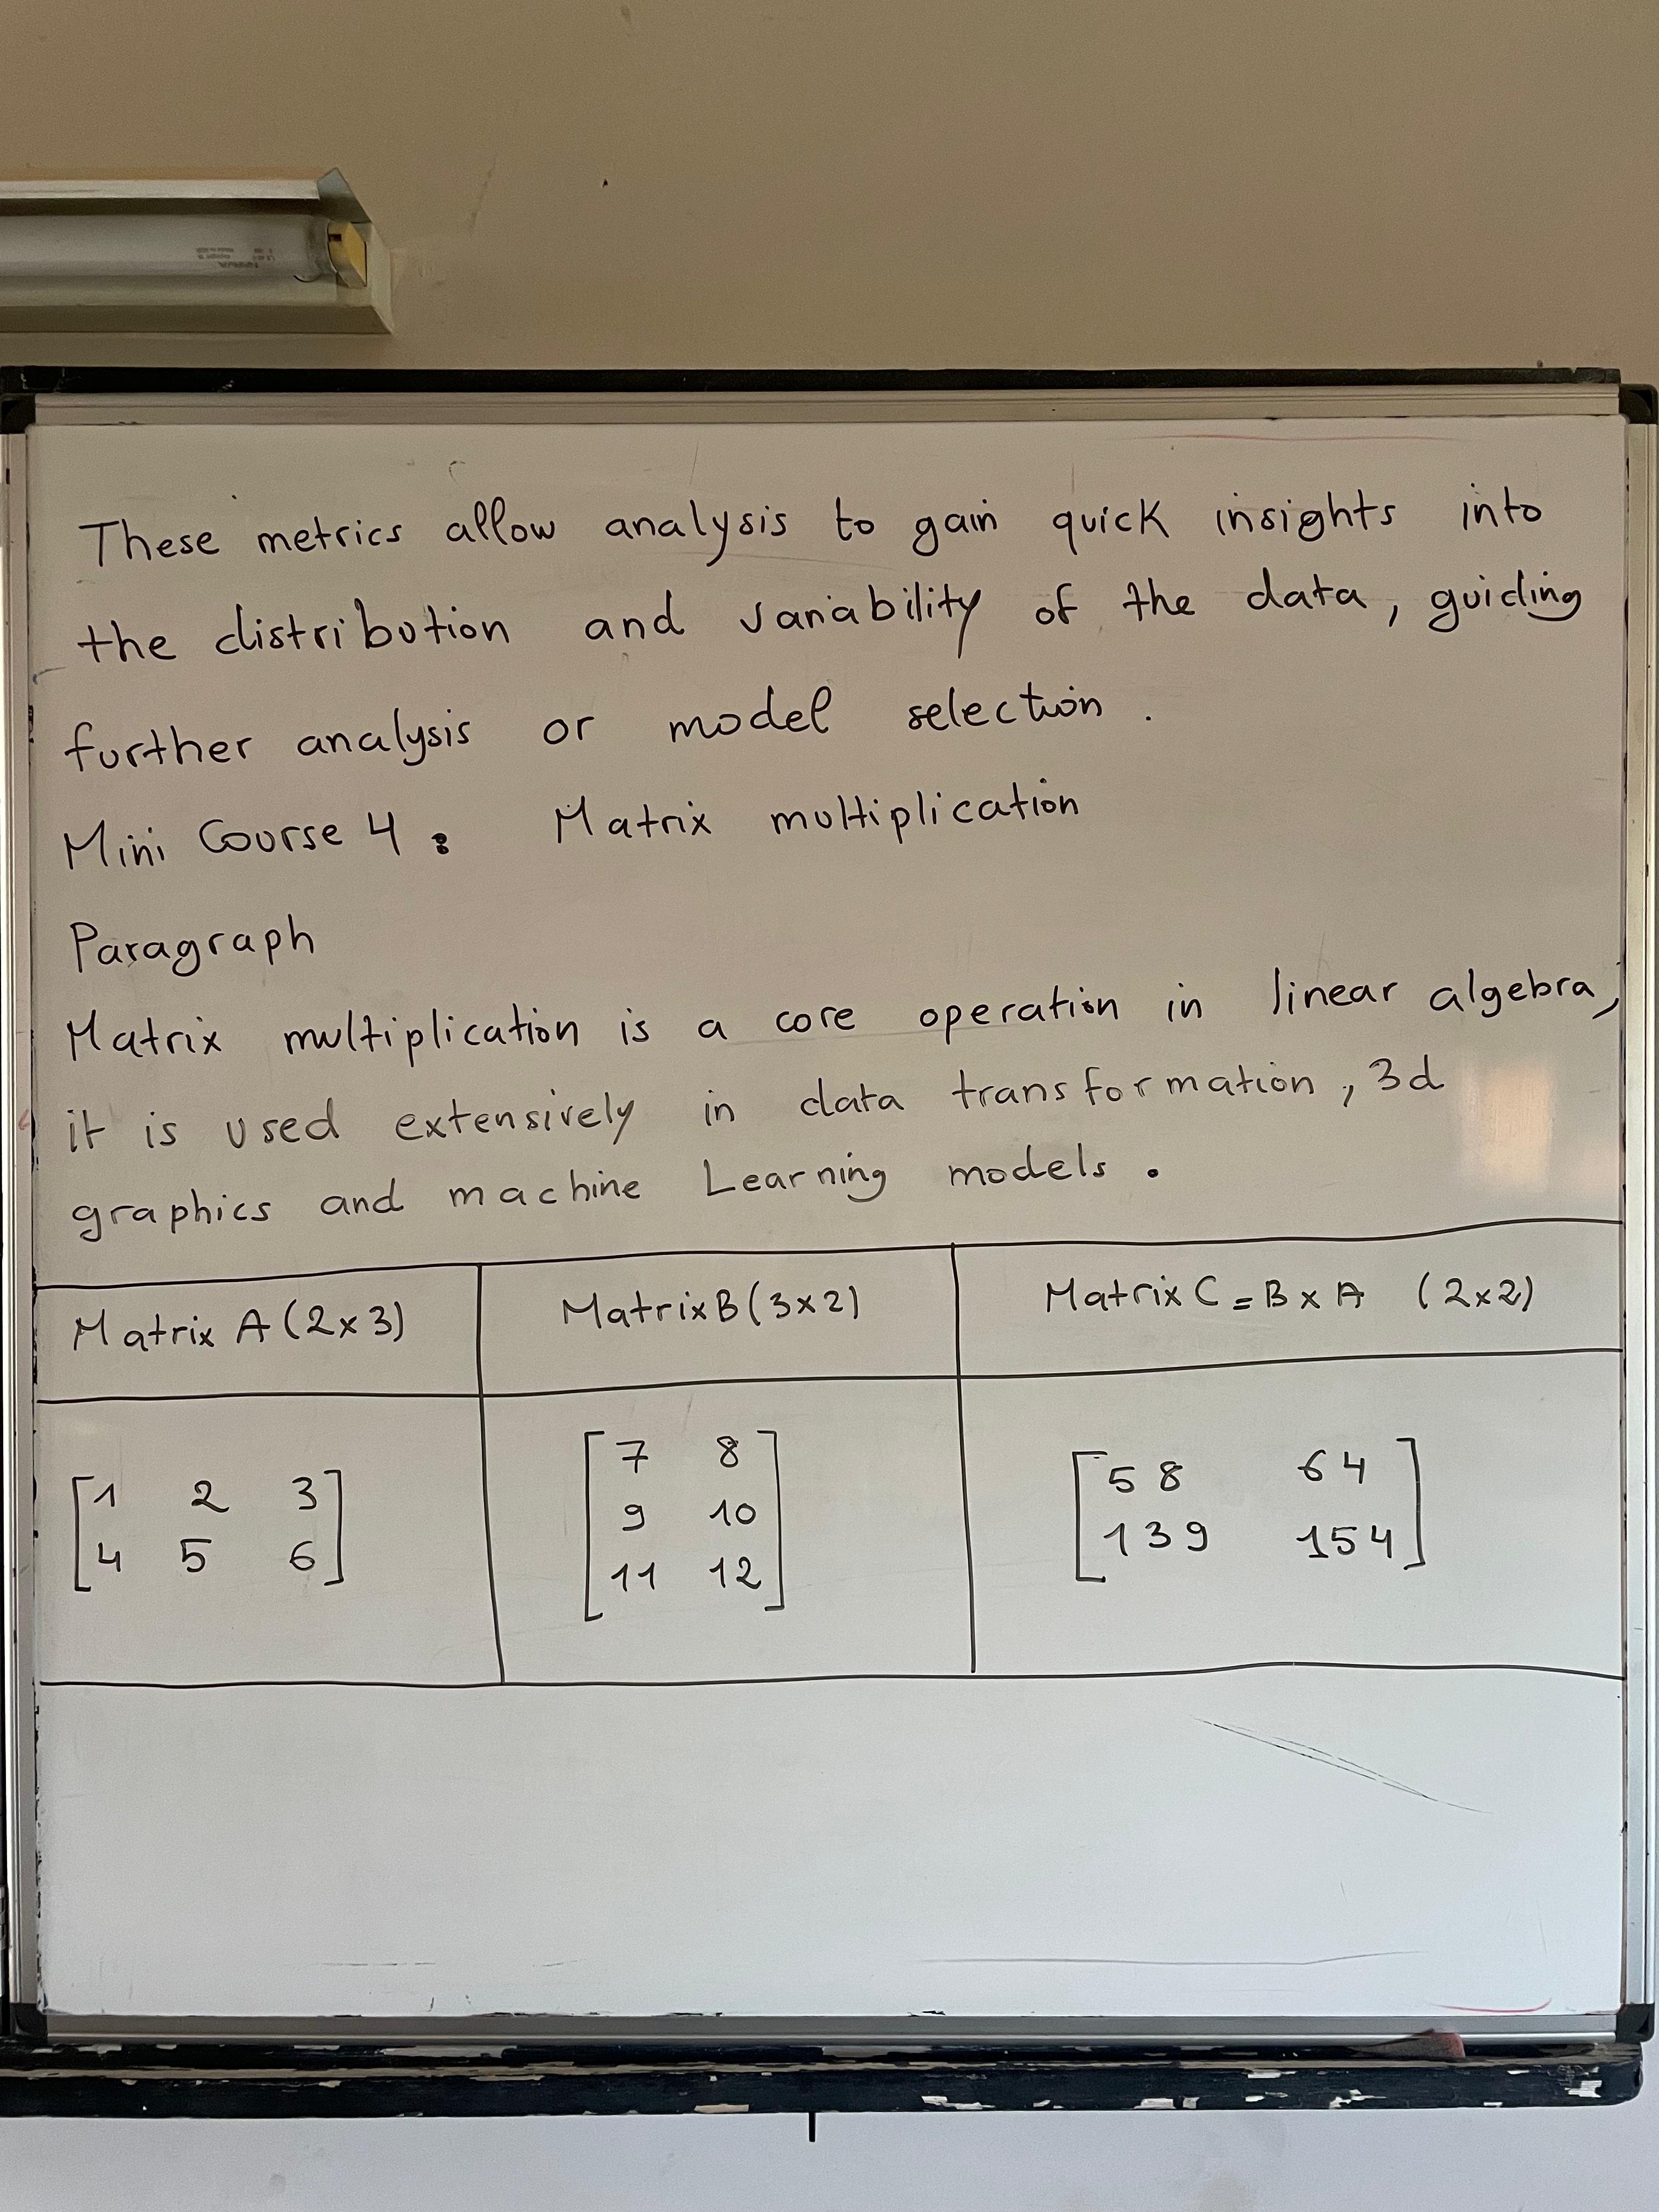 These metrics allow analysis to gain quick insights into
the distribution and variability of the data, guiding
further analysis or model selection.
Mini Course 4: Matrix multiplication
Paragraph
Matrix multiplication is a core operation in linear algebra,
it is used extensively in data transformation, 3d
graphics and machine Learning models.
Matrix A (2x3) Matrix B (3x2) Matrix C = B x A (2x2)
1 2 3
4 5 6
7 8
9 10
11 12
58 64
139 154